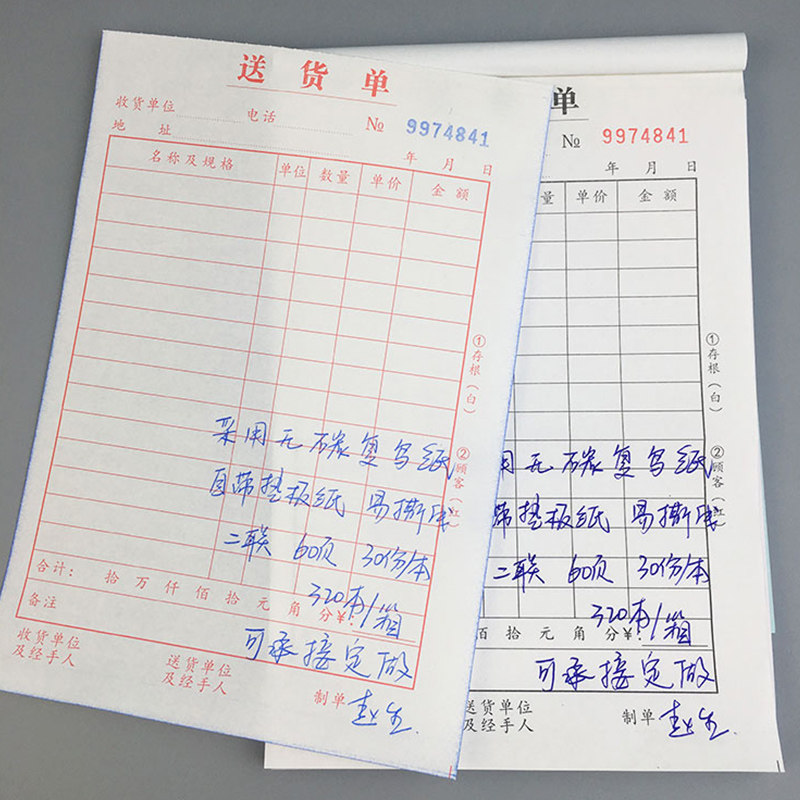 送货单
收货单位 电话 № 9974841
地 址 年 月 日
名称及规格 单位 数量 单价 金额
①存根（白）
②顾客（红）
采用无碳复写纸
自带垫板纸 易撕线
二联 60页 30份/本
合计： 拾 万 仟 佰 拾 元 角 分 ¥：
320本/箱
备注
可承接定做
收货单位及经手人
送货单位及经手人
制单
单
№ 9974841
年 月 日
量 单价 金额
①存根（白）
②顾客（红）
用无碳复写纸
带垫板纸 易撕线
二联 60页 30份/本
320本/箱
佰 拾 元 角 分 ¥：
可承接定做
送货单位及经手人
制单